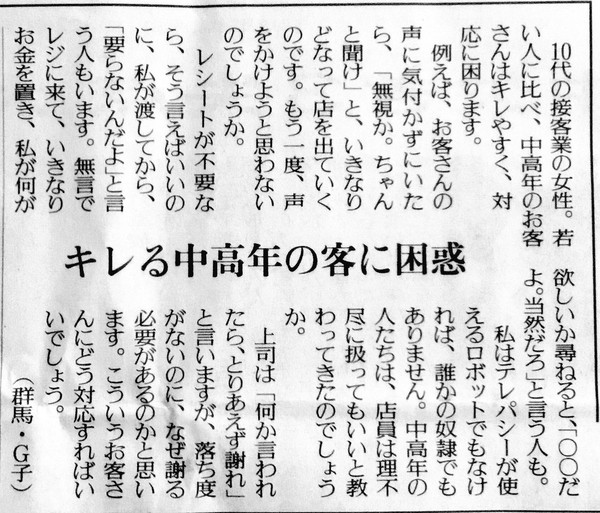 キレる中高年の客に困惑
10代の接客業の女性。若
い人に比べ、中高年のお客
さんはキレやすく、対
応に困ります。
例えば、お客さんの
声に気付かずにいた
ら、「無視か。ちゃん
と聞け」と、いきなり
どなって店を出ていく
のです。もう一度、声
をかけようと思わない
のでしょうか。
レシートが不要な
ら、そう言えばいいの
に、私が渡してから、
「要らないんだよ」と言
う人もいます。無言で
レジに来て、いきなり
お金を置き、私が何が
欲しいか尋ねると、「〇〇だ
よ。当然だろ」と言う人も。
私はテレパシーが使
えるロボットでもなけ
れば、誰かの奴隷でも
ありません。中高年の
人たちは、店員は理不
尽に扱ってもいいと教
わってきたのでしょう
か。
上司は「何か言われ
たら、とりあえず謝れ」
と言いますが、落ち度
がないのに、なぜ謝る
必要があるのかと思い
ます。こういうお客さ
んにどう対応すればい
いでしょう。
（群馬・G子）